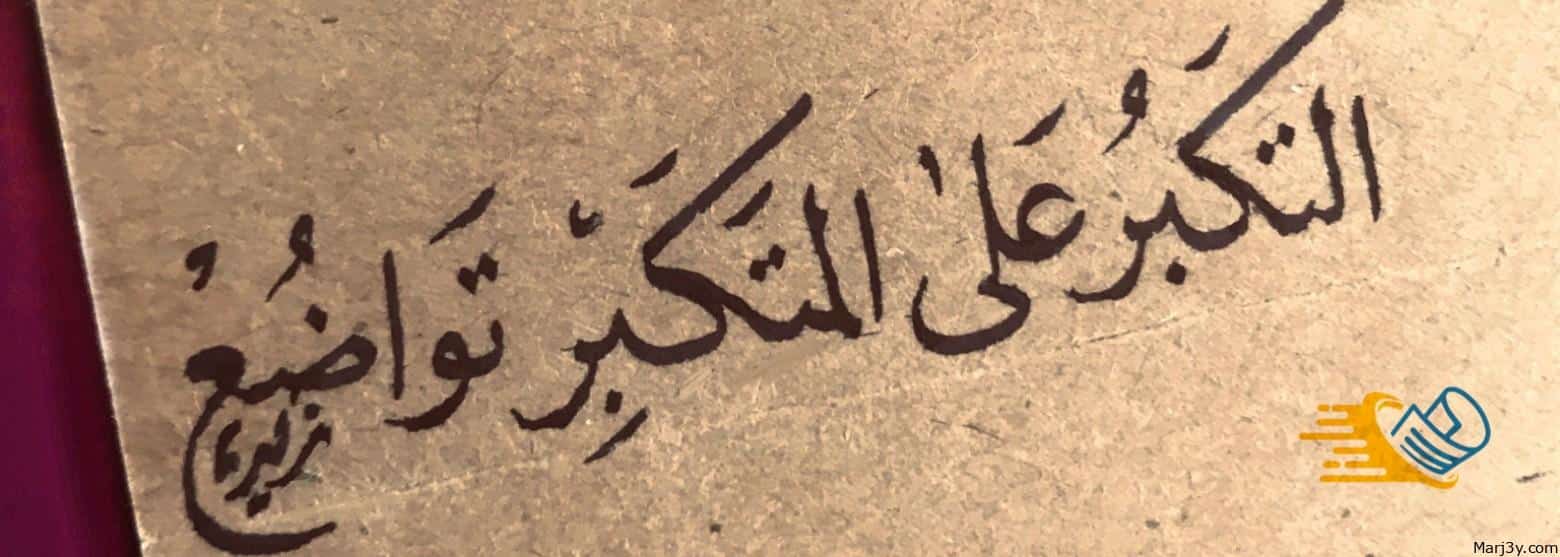 التكَبُر عَلىٰ المتَكَبِرْ تَواضُعْ
Marj3y.com